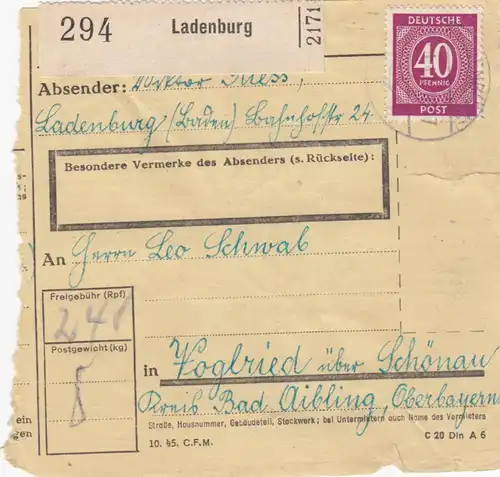 294
Ladenburg
2171
DEUTSCHE
40
PFENNIG
POST
Absender: Viktor Suess,
Ladenburg (Baden) Bahnhofstr 24.
Besondere Vermerke des Absenders (s. Rückseite):
An Herrn Leo Schwab
Freigebühr (Rpf)
240
Postgewicht (kg)
8
in Voglried über Schönau
Kreis Bad Aibling, Oberbayern
Straße, Hausnummer, Gebäudeteil, Stockwerk; bei Untermietern auch Name des Vermieters
10. 45. C.F.M.
C 20 Din A 6
ein
gen